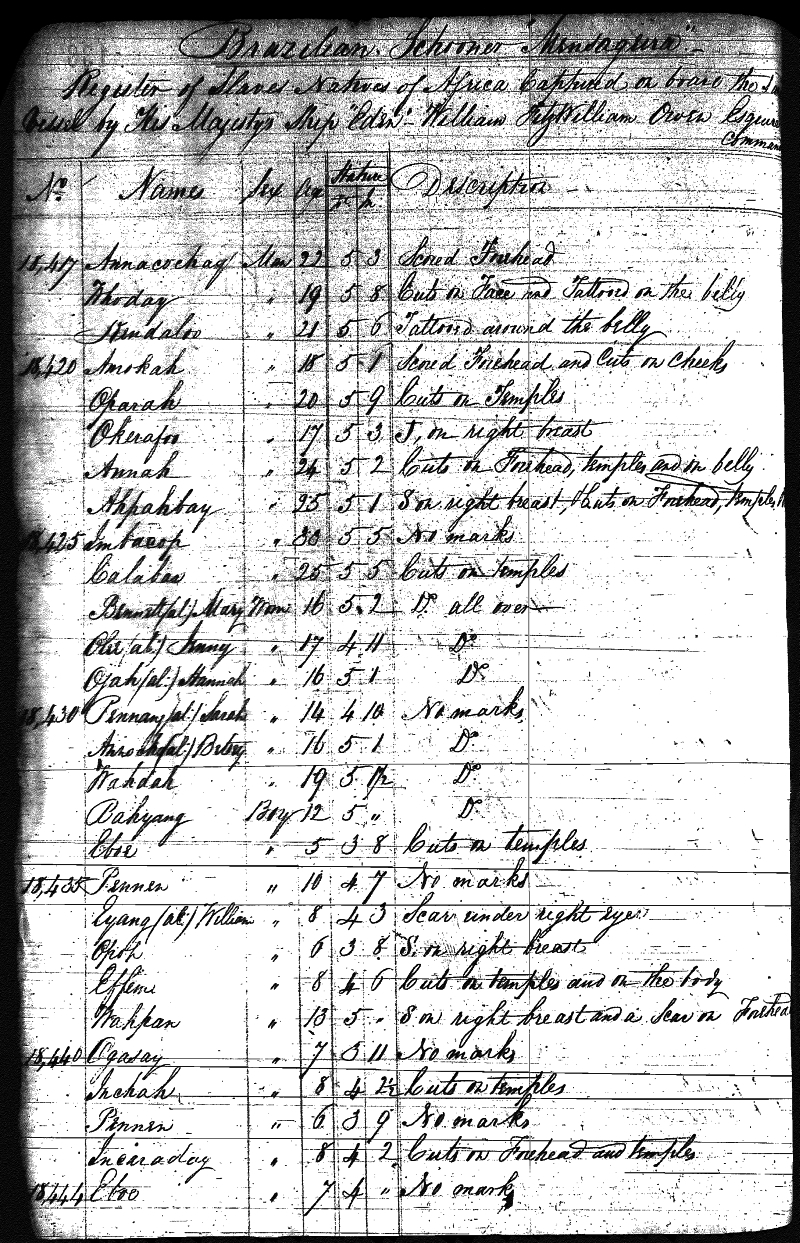 Brazilian Schooner "Mensageira"
Register of Slaves Natives of Africa Captured on board the
Vessel by His Majesty's Ship "Eden" William FitzWilliam Owen Esquire
Comman
No. Names Sex Age Stature Description
F. In.
18,417 Annacochay Man 22 5 3 Scored Forehead
Khoday " 19 5 8 Cuts on Face and Tattooed on the belly
" 21 5 6 Tattooed around the belly
18,420 Amokah " 18 5 1 Scored Forehead and Cuts on Cheeks
Oparah " 20 5 9 Cuts on Temples
Okerafoo " 17 5 3 J, on right breast
Annah " 24 5 2 Cuts on Forehead, temples and on belly
Ahpahbay " 25 5 1 S on right breast, Cuts on Forehead, temples
18,425 Imbacop " 30 5 5 No marks
Calabar " 25 5 5 Cuts on temples
(al.) Mary Wom 16 5 2 Do. all over
(al.) Jenny " 17 4 11 Do.
Ojah (al.) Hannah " 16 5 1 Do.
18,430 Pennany (al.) Sarah " 14 4 10 No marks
(al.) Betsey " 16 5 1 Do.
Wahdah " 19 5 1½ Do.
Bahyang Boy 12 5 " Do.
Eboe " 5 3 8 Cuts on temples
18,435 Pennen " 10 4 7 No marks
Eyang (al.) William " 8 4 3 Scar under right eye
Opoh " 6 3 8 S. on right breast
Effiem " 8 4 6 Cuts on temples and on the body
Wahpan " 13 5 " S on right breast and a Scar on Forehead
18,440 Ogasay " 7 3 11 No marks
Inchah " 8 4 2½ Cuts on temples
Pennen " 6 3 9 No marks
Incaraday " 8 4 2 Cuts on Forehead and temples
18,444 Eboo " 7 4 " No marks